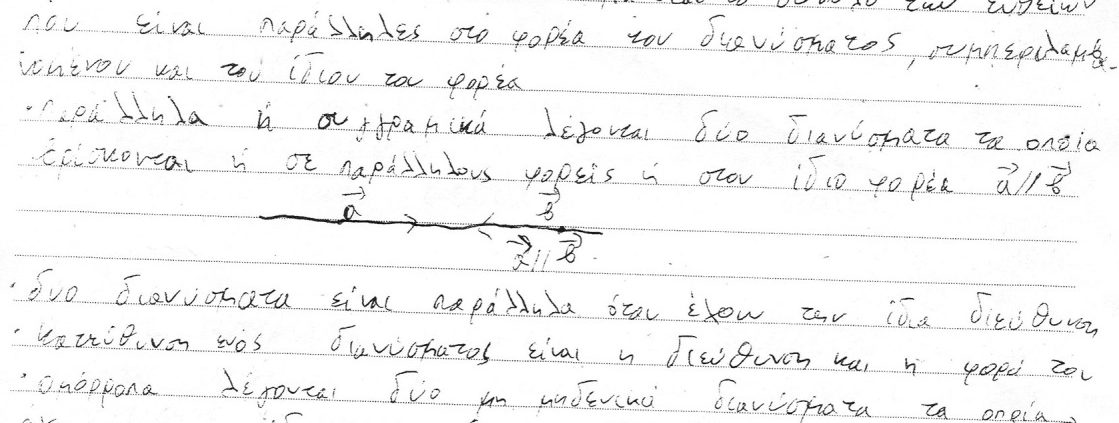 το σύνολο των ευθειών
που είναι παράλληλες στο φορέα του διανύσματος, συμπεριλαμβα-
νομένου και του ίδιου του φορέα
·παράλληλα ή συγγραμικά λέγονται δύο διανύσματα τα οποία
βρίσκονται ή σε παράλληλους φορείς ή στον ίδιο φορέα a⃗//β⃗
a⃗ β⃗
a⃗//β⃗
·δυο διανύσματα είναι παράλληλα όταν έχουν την ίδια διεύθυνση
·κατεύθυνση ενός διανύσματος είναι η διεύθυνση και η φορά του
·ομόρροπα λέγονται δύο μη μηδενικά διανύσματα τα οποία